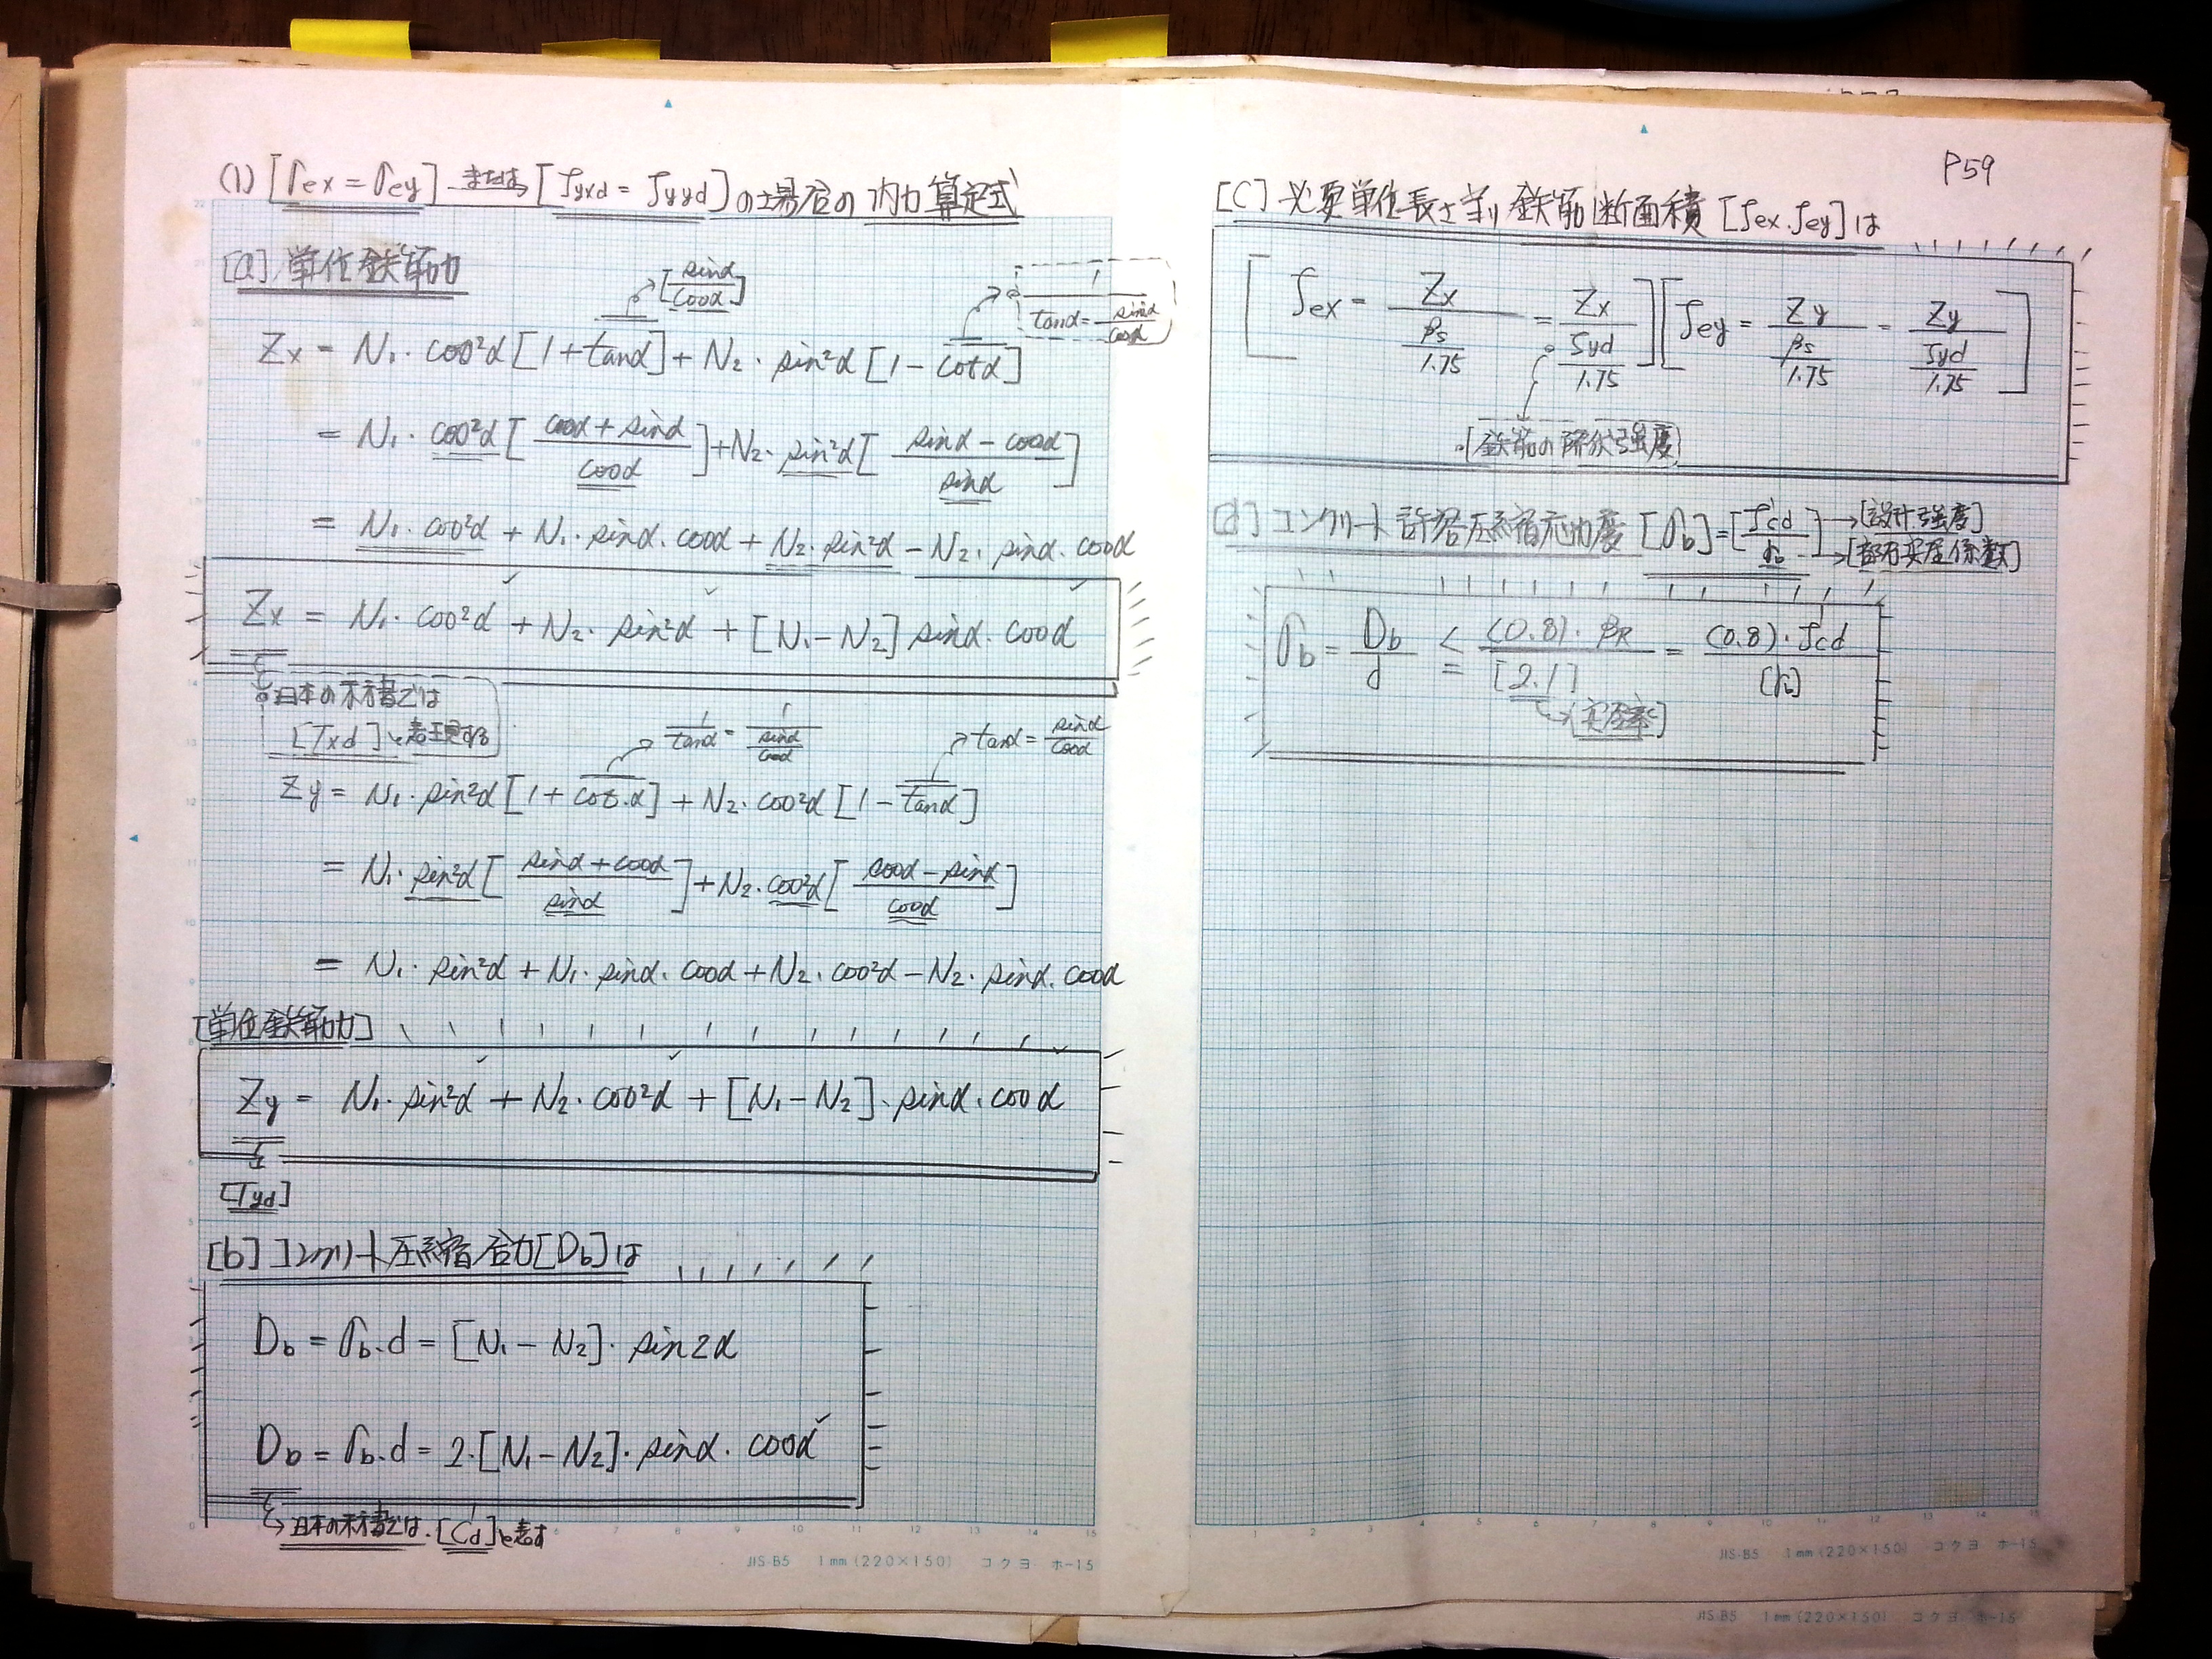 (1) [σex = σey] または [fyxd = fyyd] の場合の内力算定式
[a] 単位鉄筋力
[sinα/cosα]
1/tanα = sinα/cosα
Zx = N1・cos²α[1+tanα]+N2・sin²α[1-cotα]
= N1・cos²α[(cosα+sinα)/cosα]+N2・sin²α[(sinα-cosα)/sinα]
= N1・cos²α+N1・sinα・cosα+N2・sin²α-N2・sinα・cosα
Zx = N1・cos²α+N2・sin²α+[N1-N2]sinα・cosα
日本の示方書では
[Txd]と表現する
1/tanα = 1/(sinα/cosα)
tanα = sinα/cosα
Zy = N1・sin²α[1+cot・α]+N2・cos²α[1-tanα]
= N1・sin²α[(sinα+cosα)/sinα]+N2・cos²α[(cosα-sinα)/cosα]
= N1・sin²α+N1・sinα・cosα+N2・cos²α-N2・sinα・cosα
[単位鉄筋力]
Zy = N1・sin²α+N2・cos²α+[N1-N2]・sinα・cosα
[Tyd]
[b] コンクリート圧縮合力[Db]は
Db = σb・d = [N1-N2]・sin2α
Db = σb・d = 2・[N1-N2]・sinα・cosα
日本の示方書では、[Cd]と表す
JIS-B5 1mm(220×150) コクヨ ホ-15
P59
[C] 必要単位長さ当り鉄筋断面積[fex.fey]は
[fex = Zx/(βs/1.75) = Zx/(fyd/1.75)][fey = Zy/(βs/1.75) = Zy/(fyd/1.75)]
[鉄筋の降伏強度]
[d] コンクリート許容圧縮応力度[σb]=[f'cd/rb]→[設計強度]
→[部材安全係数]
σb = Db/d ≦ (0.8)・βR/[2.1] = (0.8)・f'cd/[rb]
[安全率]
JIS-B5 1mm(220×150) コクヨ ホ-15
JIS-B5 1mm(220×150) コクヨ ホ-15